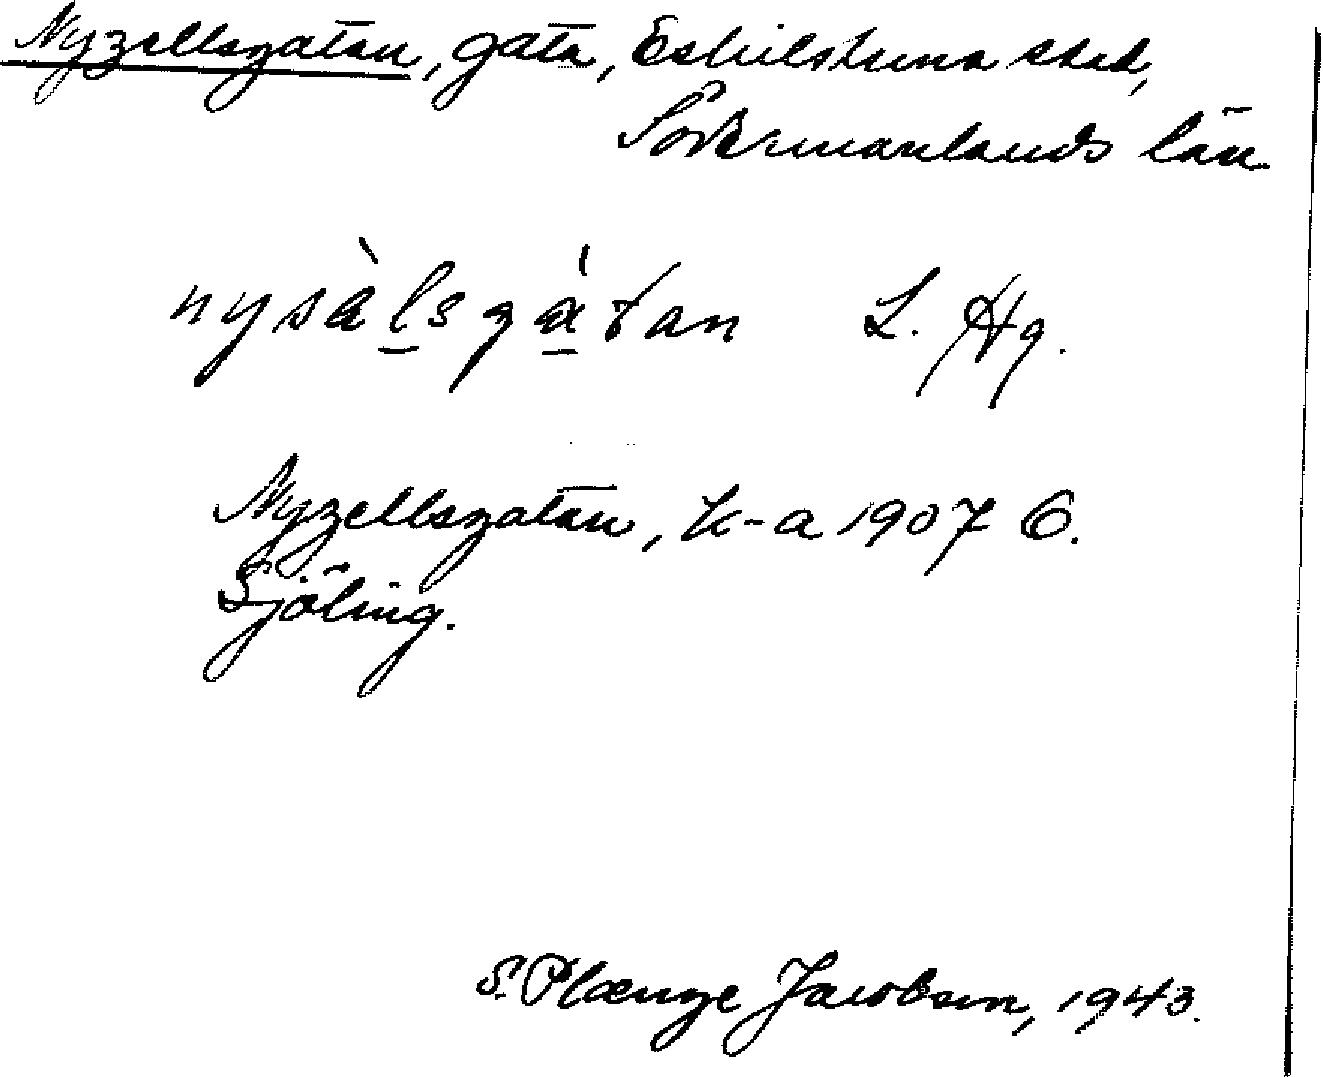 Nyzellsgatan, gata, Eskilstuna stad,
Södermanlands län.
nysàlsgátan L. Hg.
Nyzellsgatan, k-a 1907 G.
Sjöling.
S. Plænge Jacobson, 1943.